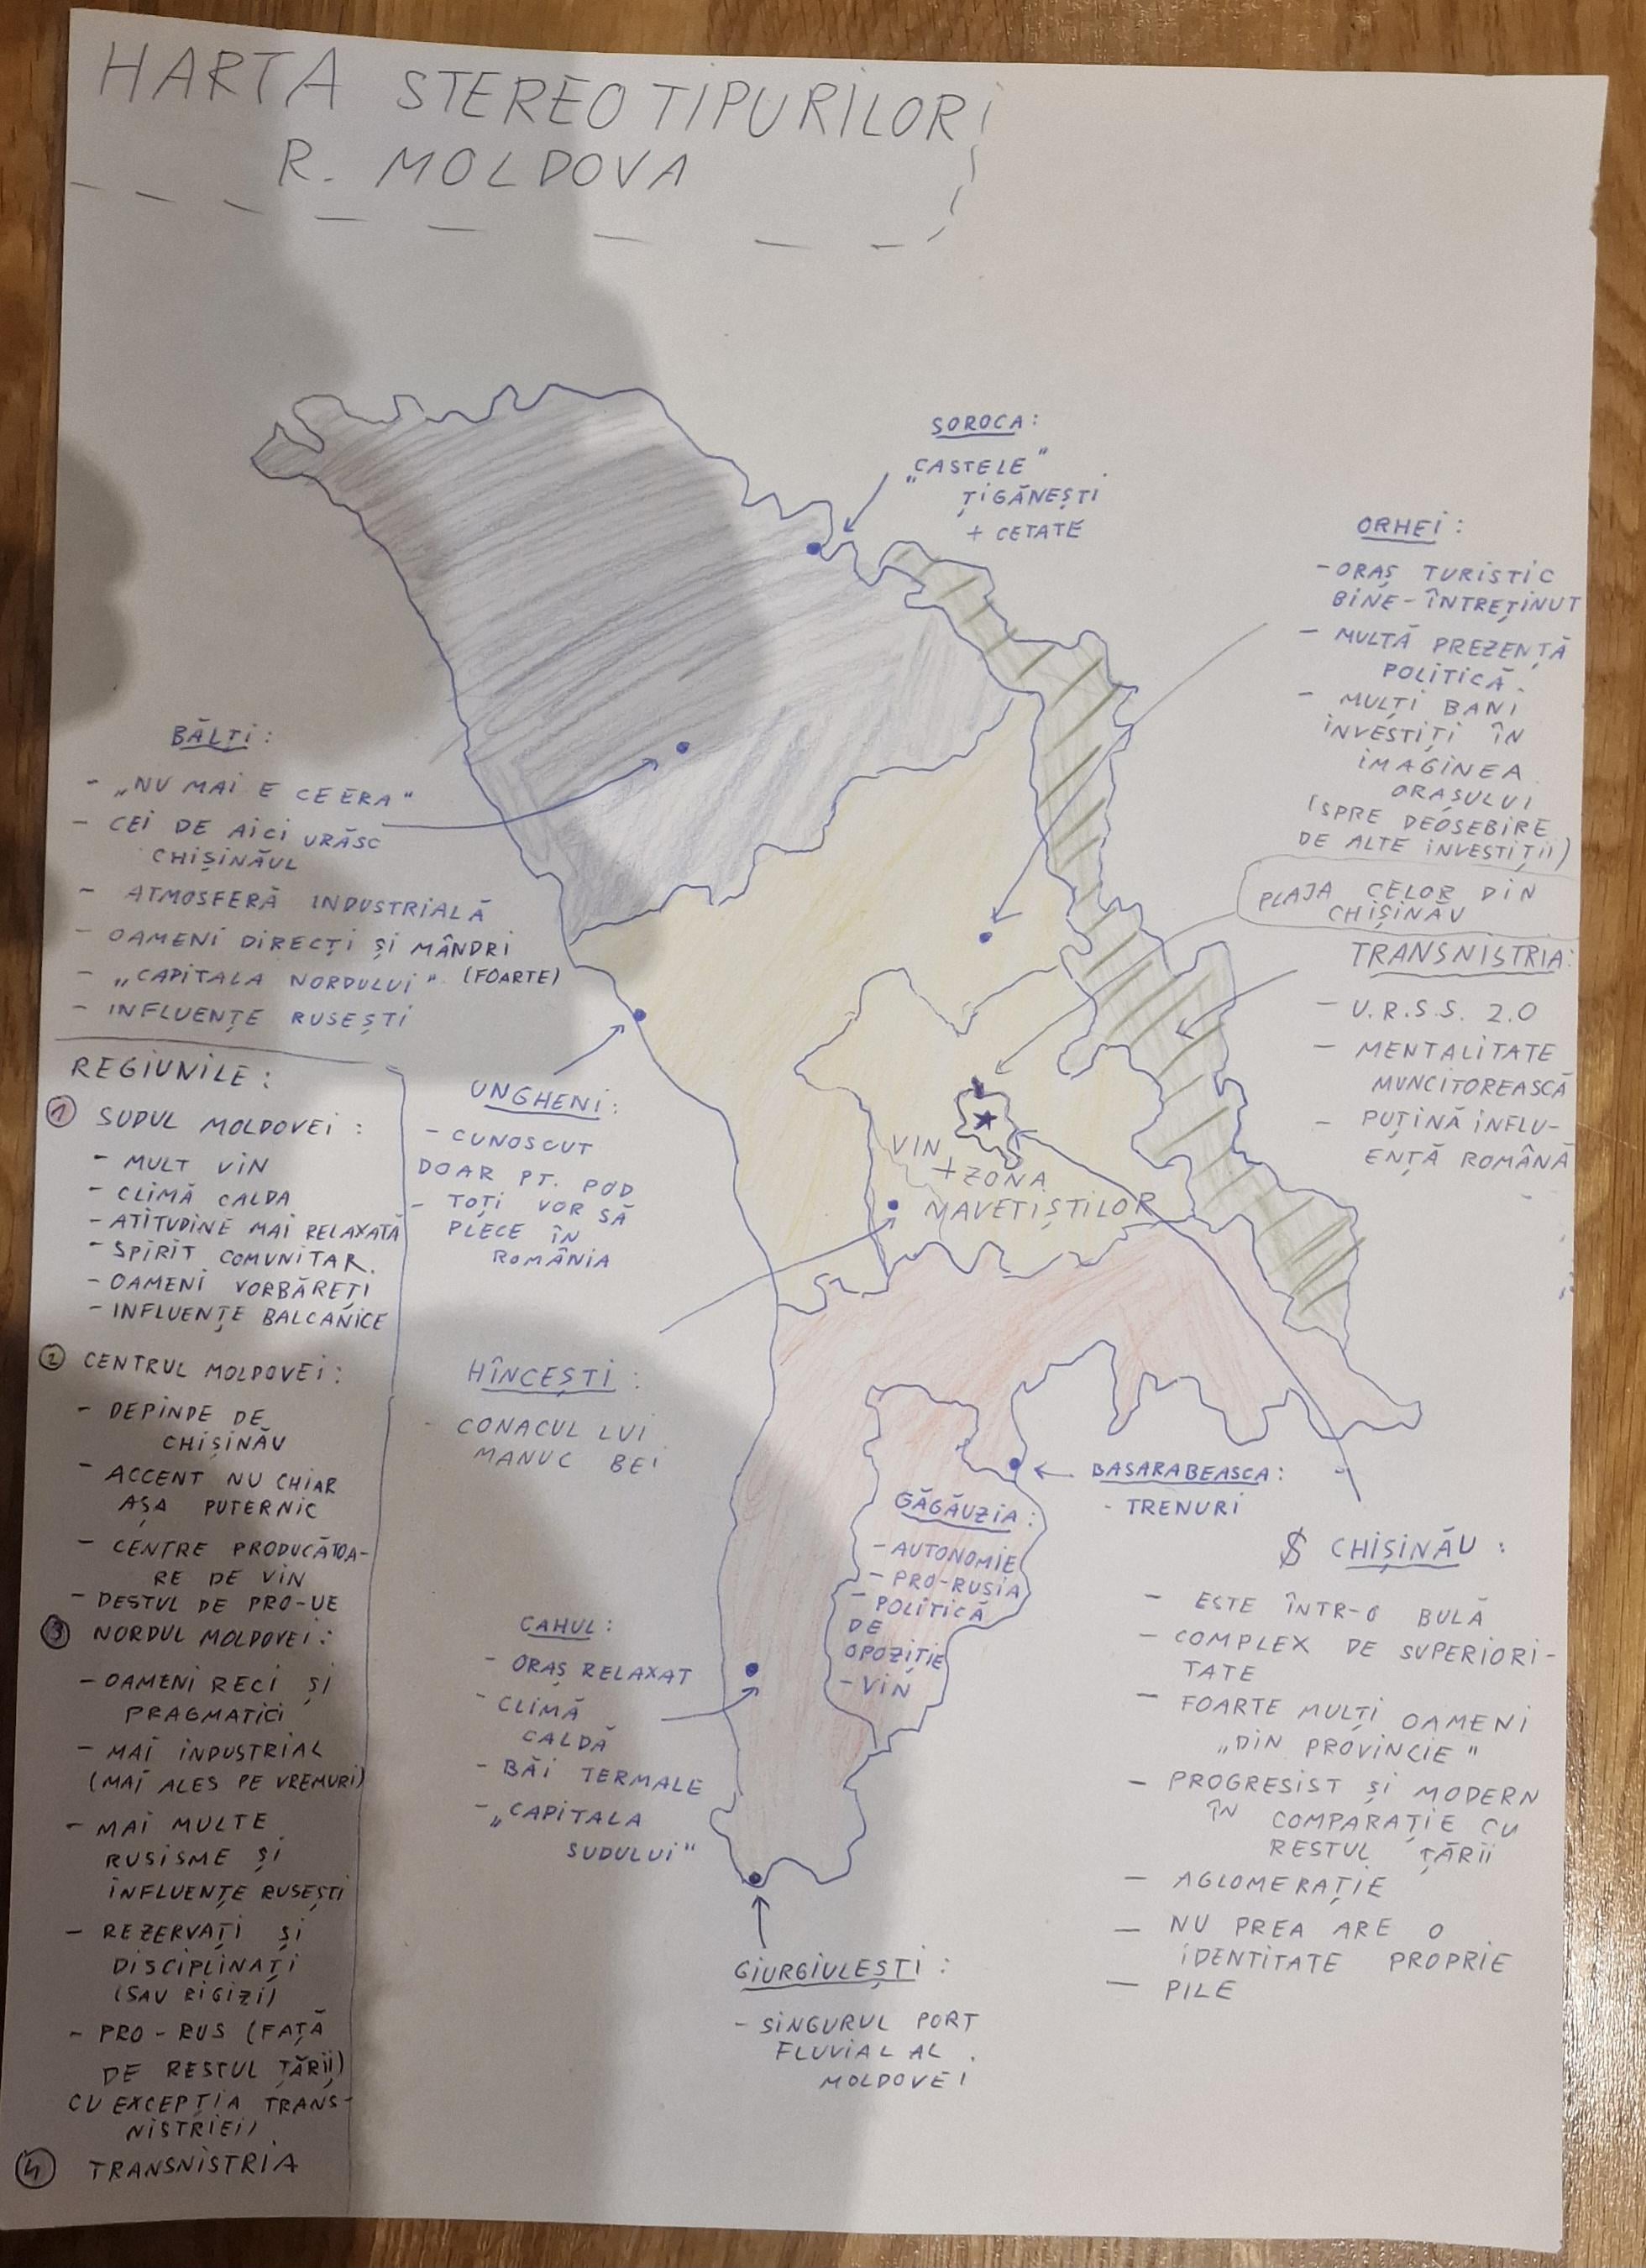 HARTA STEREOTIPURILOR
R. MOLDOVA
SOROCA:
„CASTELE"
ȚIGĂNEȘTI
+ CETATE
ORHEI:
- ORAȘ TURISTIC
BINE-ÎNTREȚINUT
- MULTĂ PREZENȚĂ
POLITICĂ.
- MULȚI BANI
INVESTIȚI ÎN
IMAGINEA
ORAȘULUI
(SPRE DEOSEBIRE
DE ALTE INVESTIȚII)
PLAJA CELOR DIN
CHIȘINĂU
TRANSNISTRIA:
- U.R.S.S. 2.0
- MENTALITATE
MUNCITOREASCĂ
- PUȚINĂ INFLU-
ENȚĂ ROMÂNĂ
BĂLȚI:
- „NU MAI E CE ERA"
- CEI DE AICI URĂSC
CHIȘINĂUL
- ATMOSFERĂ INDUSTRIALĂ
- OAMENI DIRECȚI ȘI MÂNDRI
(FOARTE)
- „CAPITALA NORDULUI"
- INFLUENȚE RUSEȘTI
REGIUNILE:
1 SUDUL MOLDOVEI:
- MULT VIN
- CLIMĂ CALDA
- ATITUDINE MAI RELAXATĂ
- SPIRIT COMUNITAR.
- OAMENI VORBĂREȚI
- INFLUENȚE BALCANICE
2 CENTRUL MOLDOVEI:
- DEPINDE DE
CHIȘINĂU
- ACCENT NU CHIAR
AȘA PUTERNIC
- CENTRE PRODUCĂTOA-
RE DE VIN
- DESTUL DE PRO-UE
3 NORDUL MOLDOVEI:
- OAMENI RECI ȘI
PRAGMATICI
- MAI INDUSTRIAL
(MAI ALES PE VREMURI)
- MAI MULTE
RUSISME ȘI
INFLUENȚE RUSEȘTI
- REZERVAȚI ȘI
DISCIPLINAȚI
(SAU RIGIZI)
- PRO-RUS (FAȚĂ
DE RESTUL ȚĂRII)
CU EXCEPȚIA TRANS-
NISTRIEI)
4 TRANSNISTRIA
UNGHENI:
- CUNOSCUT
DOAR PT. POD
- TOȚI VOR SĂ
PLECE ÎN
ROMÂNIA
VIN
+ ZONA
NAVETIȘTILOR
HÎNCEȘTI:
- CONACUL LUI
MANUC BEI
BASARABEASCA:
- TRENURI
GĂGĂUZIA:
- AUTONOMIE
- PRO-RUSIA
- POLITICĂ
DE
OPOZIȚIE
- VIN
CAHUL:
- ORAȘ RELAXAT
- CLIMĂ
CALDĂ
- BĂI TERMALE
- „CAPITALA
SUDULUI"
GIURGIULEȘTI:
- SINGURUL PORT
FLUVIAL AL
MOLDOVEI
$ CHIȘINĂU:
- ESTE ÎNTR-O BULĂ
- COMPLEX DE SUPERIORI-
TATE
- FOARTE MULȚI OAMENI
„DIN PROVINCIE"
- PROGRESIST ȘI MODERN
ÎN COMPARAȚIE CU
RESTUL ȚĂRII
- AGLOMERAȚIE
- NU PREA ARE O
IDENTITATE PROPRIE
- PILE